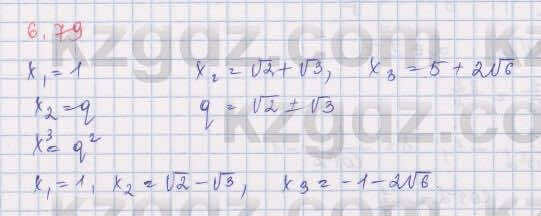 6.79
x₁ = 1 x₂ = √2 + √3, x₃ = 5 + 2√6
x₂ = q q = √2 ± √3
x³ = q²
x₁ = 1, x₂ = √2 − √3, x₃ = −1 − 2√6.
kzgdz.com